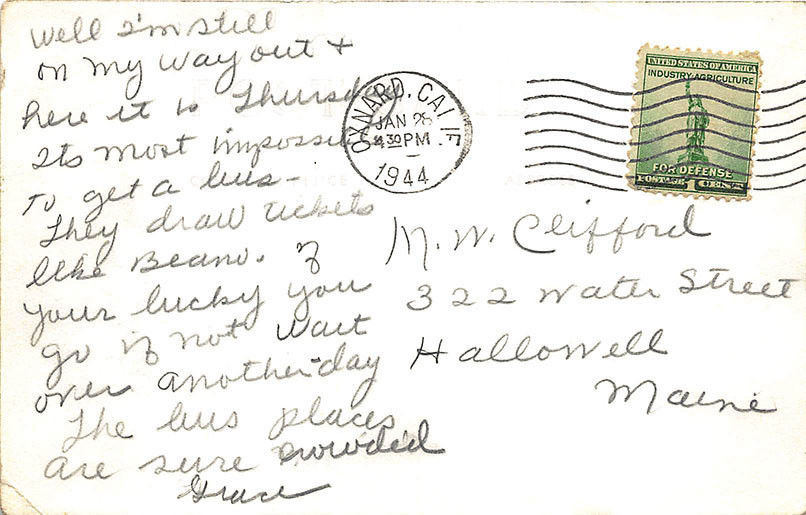 Well I'm still
on my way out +
here it is Thursday
Its most impossible
to get a bus -
They draw tickets
like Beano. If
your lucky you
go if not wait
over another day
The bus places
are sure crowded
Grace
OXNARD, CALIF.
JAN 28
4 30 PM
1944
UNITED STATES OF AMERICA
INDUSTRY AGRICULTURE
FOR DEFENSE
POSTAGE 1 CENT
M. W. Clifford
322 Water Street
Hallowell
Maine